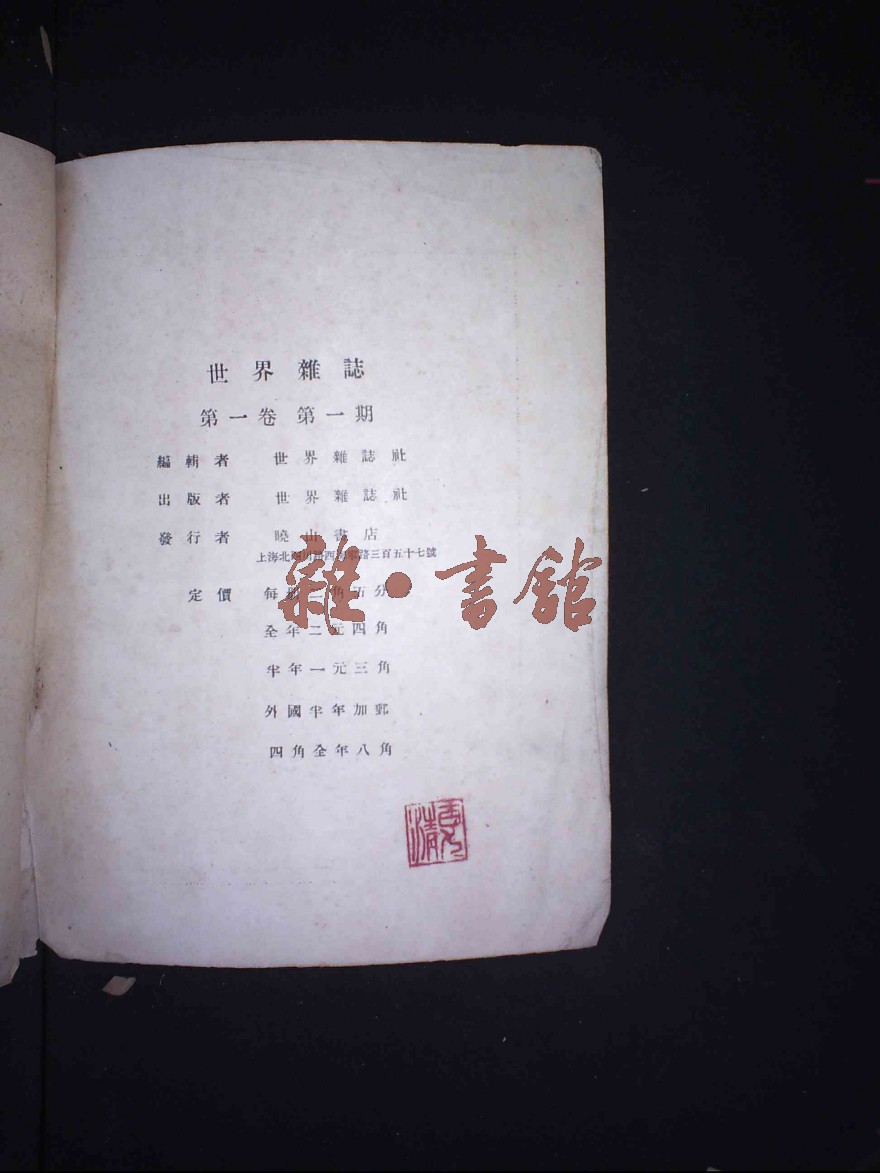 世界雜誌
第一卷 第一期
編輯者 世界雜誌社
出版者 世界雜誌社
發行者 曉山書店
上海北四川路西 路三百五十七號
定價 每册二角五分
全年二元四角
半年一元三角
外國半年加郵
四角全年八角
雜·書館